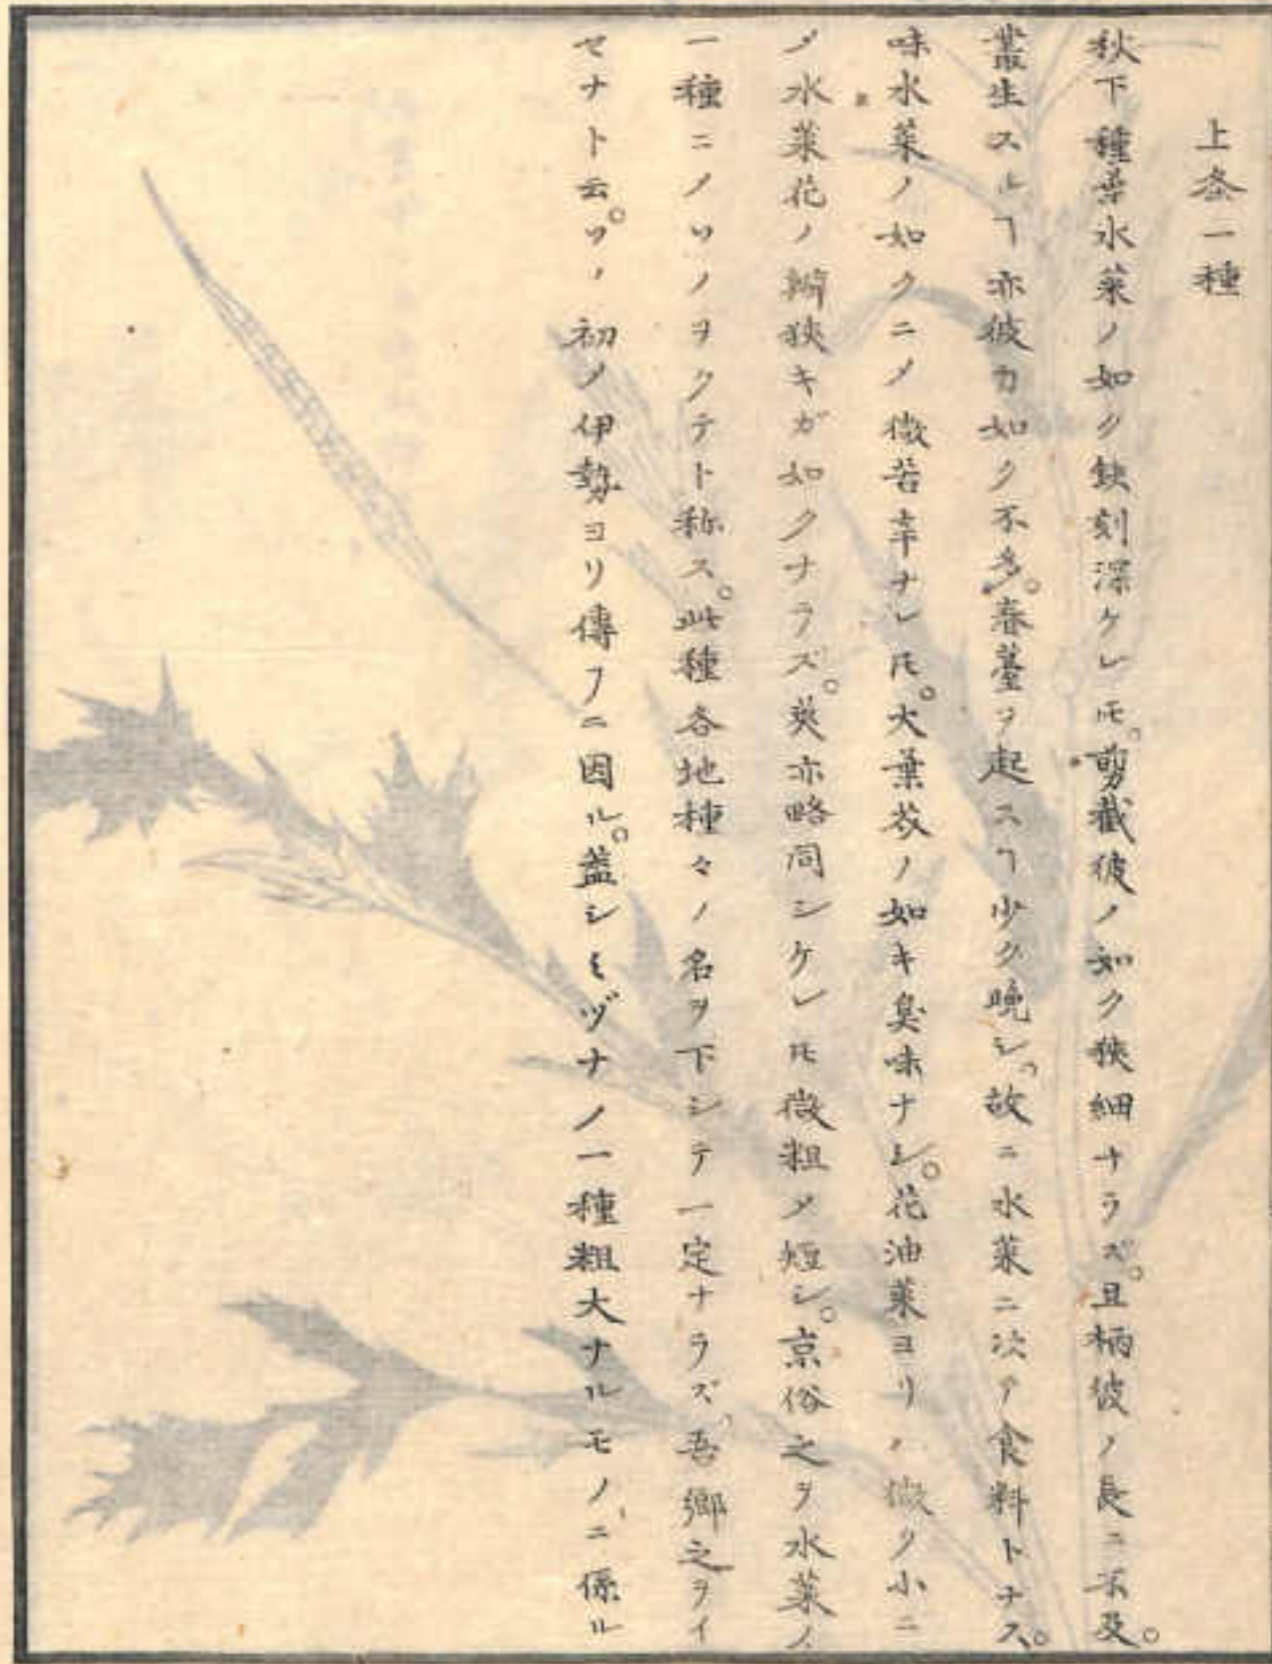 上条一種
秋下種葉水菜ノ如ク鈌刻深ケレ𪜈。剪裁彼ノ如ク狭細ナラズ。且柄彼ノ長ニ不及。
叢生スルヿ亦彼カ如ク不多。春薹ヲ起スヿ少ク晩シ。故ニ水菜ニ次テ食料トナス。
味水菜ノ如クニ〆微苦辛ナレ𪜈。大葉芥ノ如キ臭味ナシ。花油菜ヨリハ微ク小ニ
〆水菜花ノ瓣狭キガ如クナラズ。莢亦略同シケレ𪜈微粗〆短シ。京俗之ヲ水菜ノ
一種ニ〆ソノヲクテト称ス。此種各地種々ノ名ヲ下シテ一定ナラズ。吾郷之ヲイ
セナト云。ソノ初メ伊勢ヨリ傳フニ因ル。蓋シミヅナノ一種粗大ナルモノニ係ル